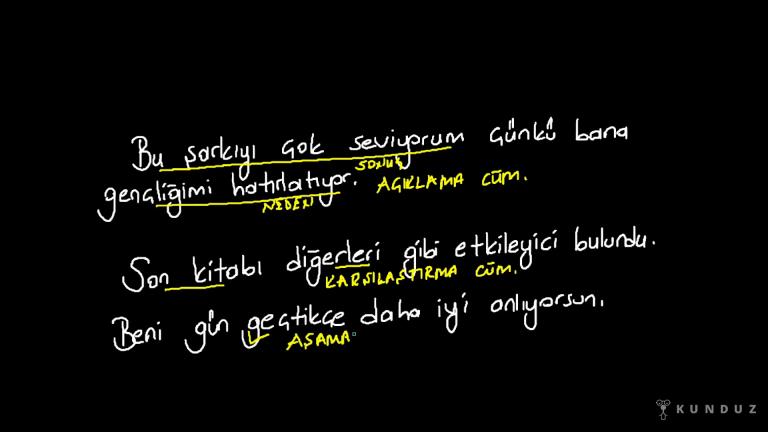 Bu şarkıyı çok seviyorum çünkü bana
SONUÇ
gençliğimi hatırlatıyor. AÇIKLAMA CÜM.
NEDENİ
Son kitabı diğerleri gibi etkileyici bulundu.
KARŞILAŞTIRMA CÜM.
Beni gün geçtikçe daha iyi anlıyorsun.
AŞAMA
KUNDUZ